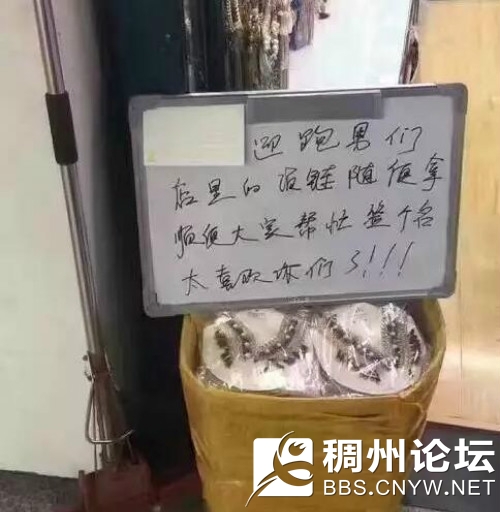 迎跑男们
店里的项链随便拿
顺便大家帮忙签个名
太喜欢你们了!!!!
稠州论坛
BBS.CNYW.NET